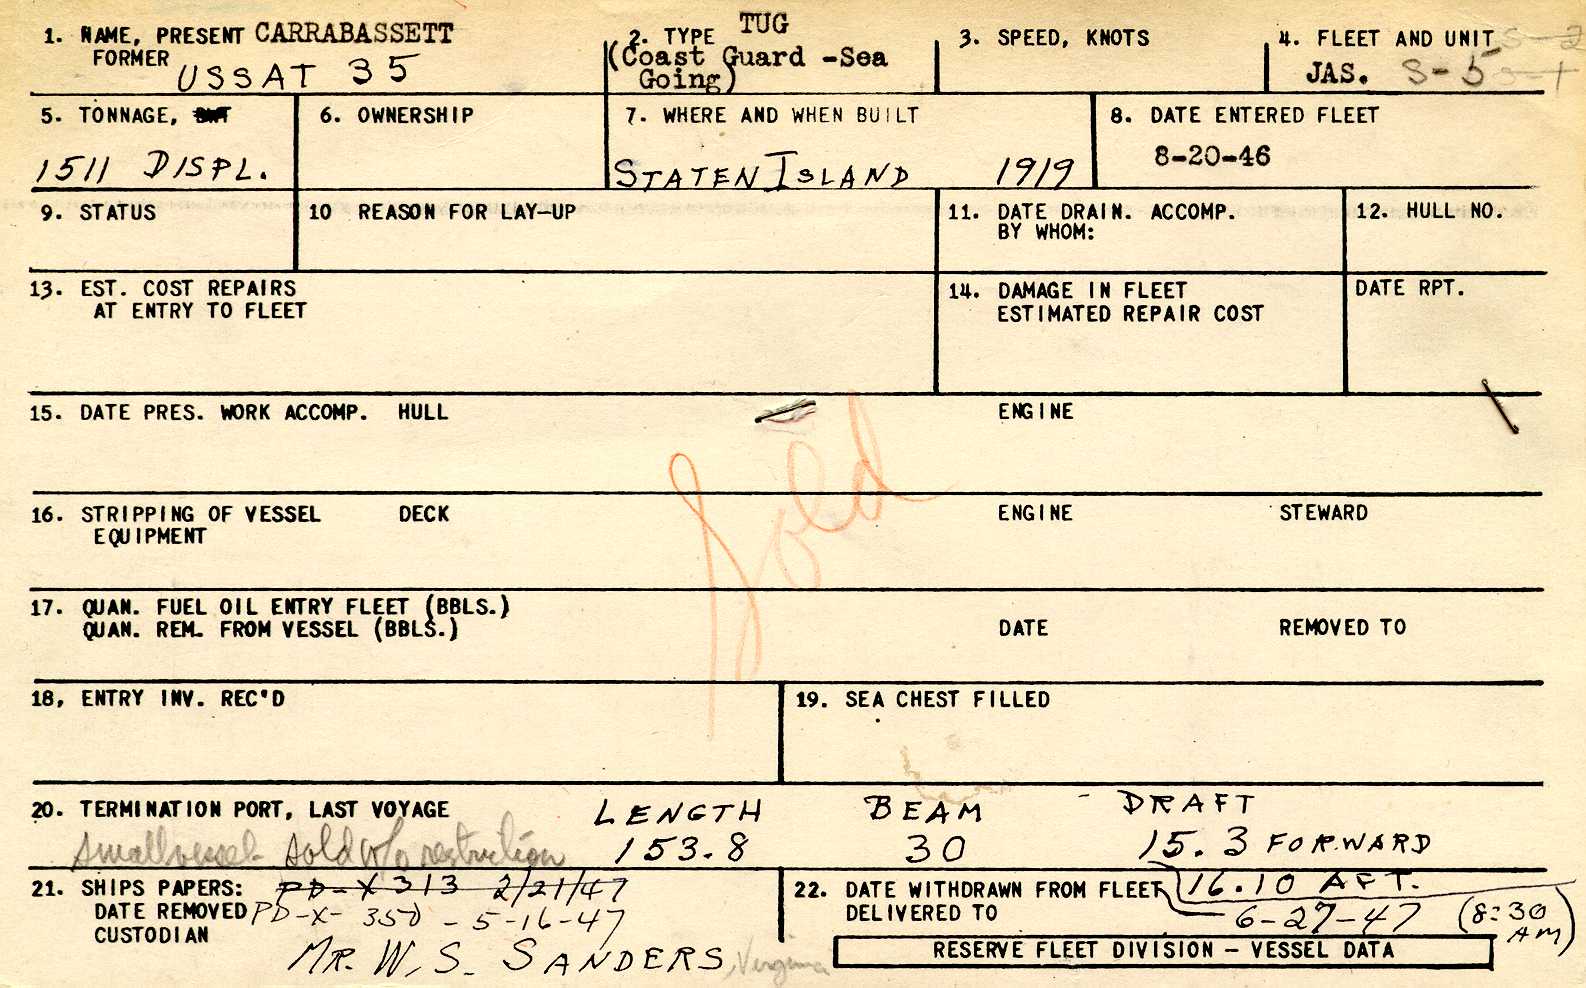 1. NAME, PRESENT CARRABASSETT
FORMER USSAT 35
2. TYPE TUG
(Coast Guard -Sea
Going)
3. SPEED, KNOTS
4. FLEET AND UNIT S-2
JAS. S-5 S-1
5. TONNAGE, DWT
1511 DISPL.
6. OWNERSHIP
7. WHERE AND WHEN BUILT
STATEN ISLAND 1919
8. DATE ENTERED FLEET
8-20-46
9. STATUS
10 REASON FOR LAY-UP
11. DATE DRAIN. ACCOMP.
BY WHOM:
12. HULL NO.
13. EST. COST REPAIRS
AT ENTRY TO FLEET
14. DAMAGE IN FLEET
ESTIMATED REPAIR COST
DATE RPT.
15. DATE PRES. WORK ACCOMP. HULL ENGINE
Sold
16. STRIPPING OF VESSEL DECK ENGINE STEWARD
EQUIPMENT
17. QUAN. FUEL OIL ENTRY FLEET (BBLS.)
QUAN. REM. FROM VESSEL (BBLS.) DATE REMOVED TO
18, ENTRY INV. REC'D
19. SEA CHEST FILLED
20. TERMINATION PORT, LAST VOYAGE LENGTH BEAM - DRAFT
Small vessel- sold w/o restriction 153.8 30 15.3 FORWARD
16.10 AFT.
21. SHIPS PAPERS: PD-X 313 2/21/47
DATE REMOVED PD-X- 350 - 5-16-47
CUSTODIAN MR. W. S. SANDERS, Virginia
22. DATE WITHDRAWN FROM FLEET
DELIVERED TO 6-27-47 (8:30
AM)
RESERVE FLEET DIVISION - VESSEL DATA